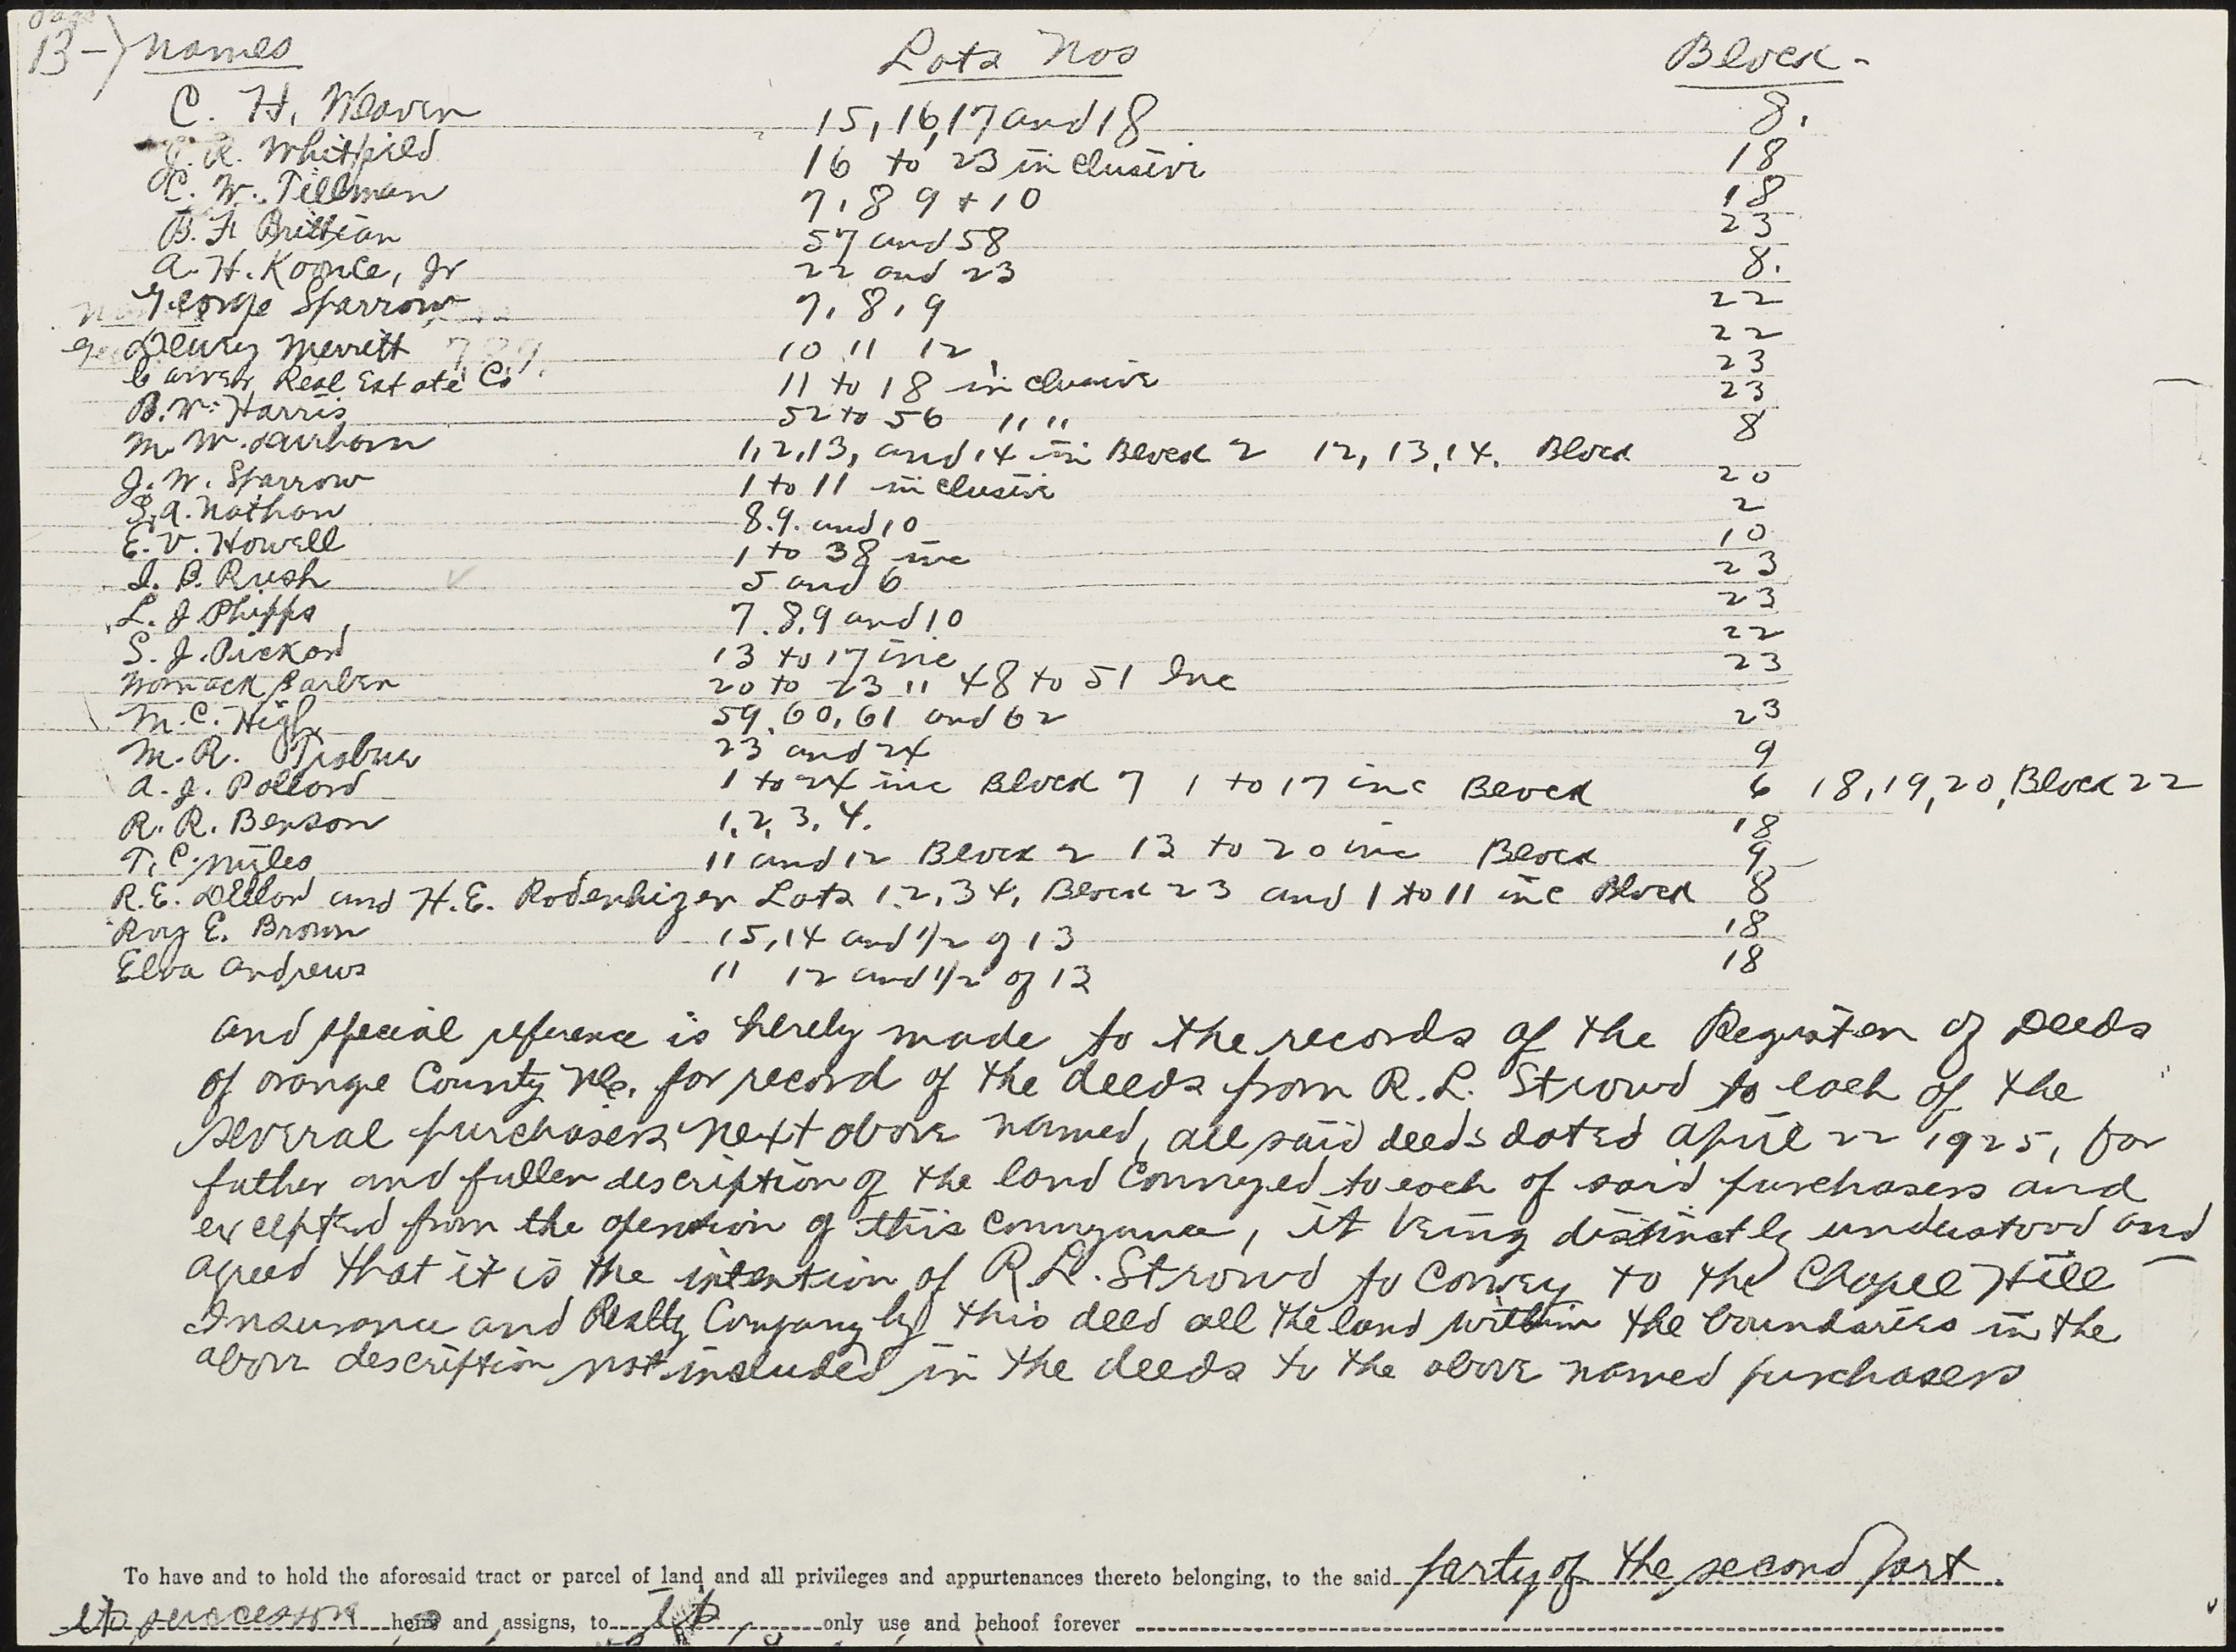 Page
B-) Names Lots Nos Block-
C. H. Weaver 15, 16, 17 and 18 8.
J. R. Whitfield 16 to 23 inclusive 18
C. W. Tillman 7, 8 9 + 10 18
B. F. Brittian 57 and 58 23
A. H. Koonce, Jr 22 and 23 8.
George Sparrow 7, 8, 9 22
Henry Merritt 10 11 12 22
Carver Real Estate Co 11 to 18 inclusive 23
B. W. Harris 52 to 56 " " 23
M. W. Durham 1, 2, 13, and 14 in Block 2 12, 13, 14. Block 8
J. W. Sparrow 1 to 11 inclusive 20
S. A. Nathan 8. 9. and 10 2
E. V. Howell 1 to 38 inc 10
J. B. Rush 5 and 6 23
L. J. Phipps 7. 8, 9 and 10 23
S. J. Pickard 13 to 17 inc 22
Womack Parker 20 to 23 " 48 to 51 Inc 23
M. C. High 59, 60, 61 and 62 23
M. R. 23 and 24 9
A. J. Pollard 1 to 24 inc Block 7 1 to 17 inc Block 6 18, 19, 20, Block 22
R. R. Benson 1, 2, 3, 4. 18
T. C. Myles 11 and 12 Block 2 13 to 20 inc Block 9
R. E. and H. E. Rodenhizer Lots 1, 2, 3 4, Block 23 and 1 to 11 inc Block 8
Roy E. Brown 15, 14 and 1/2 of 13 18
Elva Andrews 11 12 and 1/2 of 13 18
and special reference is hereby made to the records of the Register of Deeds
of Orange County N.C. for record of the deeds from R. L. Strowd to each of the
several purchasers next above named, all said deeds dated April 22 1925, for
futher and fuller description of the land conveyed to each of said purchasers and
excepted from the opention of this conveyance, it being distinctly understood and
agreed that it is the intention of R. L. Strowd to convey to the Chapel Hill
Insurance and Realty Company by this deed all the land within the boundaries in the
above description not included in the deeds to the above named purchasers
To have and to hold the aforesaid tract or parcel of land and all privileges and appurtenances thereto belonging, to the said party of the second part
its successors heirs and assigns, to its only use and behoof forever